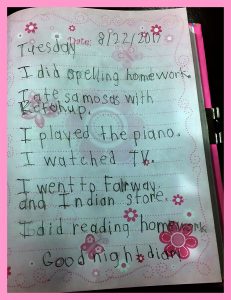 Tuesday Date: 8/22/2017
I did spelling homework.
I ate samosas with
Ketchup.
I played the piano.
I watched TV.
I went to Fairway
and Indian store.
I did reading homework.
Good night diary